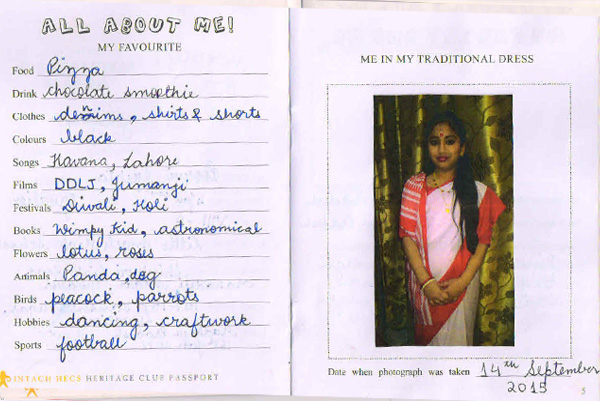 ALL ABOUT ME!
MY FAVOURITE
Food Pizza
Drink chocolate smoothie
Clothes dennims, shirts & shorts
Colours black
Songs Havana, Lahore
Films DDLJ, Jumanji
Festivals Diwali, Holi
Books Wimpy Kid, astronomical
Flowers lotus, roses
Animals Panda, dog
Birds peacock, parrots
Hobbies dancing, craftwork
Sports football
INTACH HECS HERITAGE CLUB PASSPORT
ME IN MY TRADITIONAL DRESS
Date when photograph was taken 14th September
2015
5